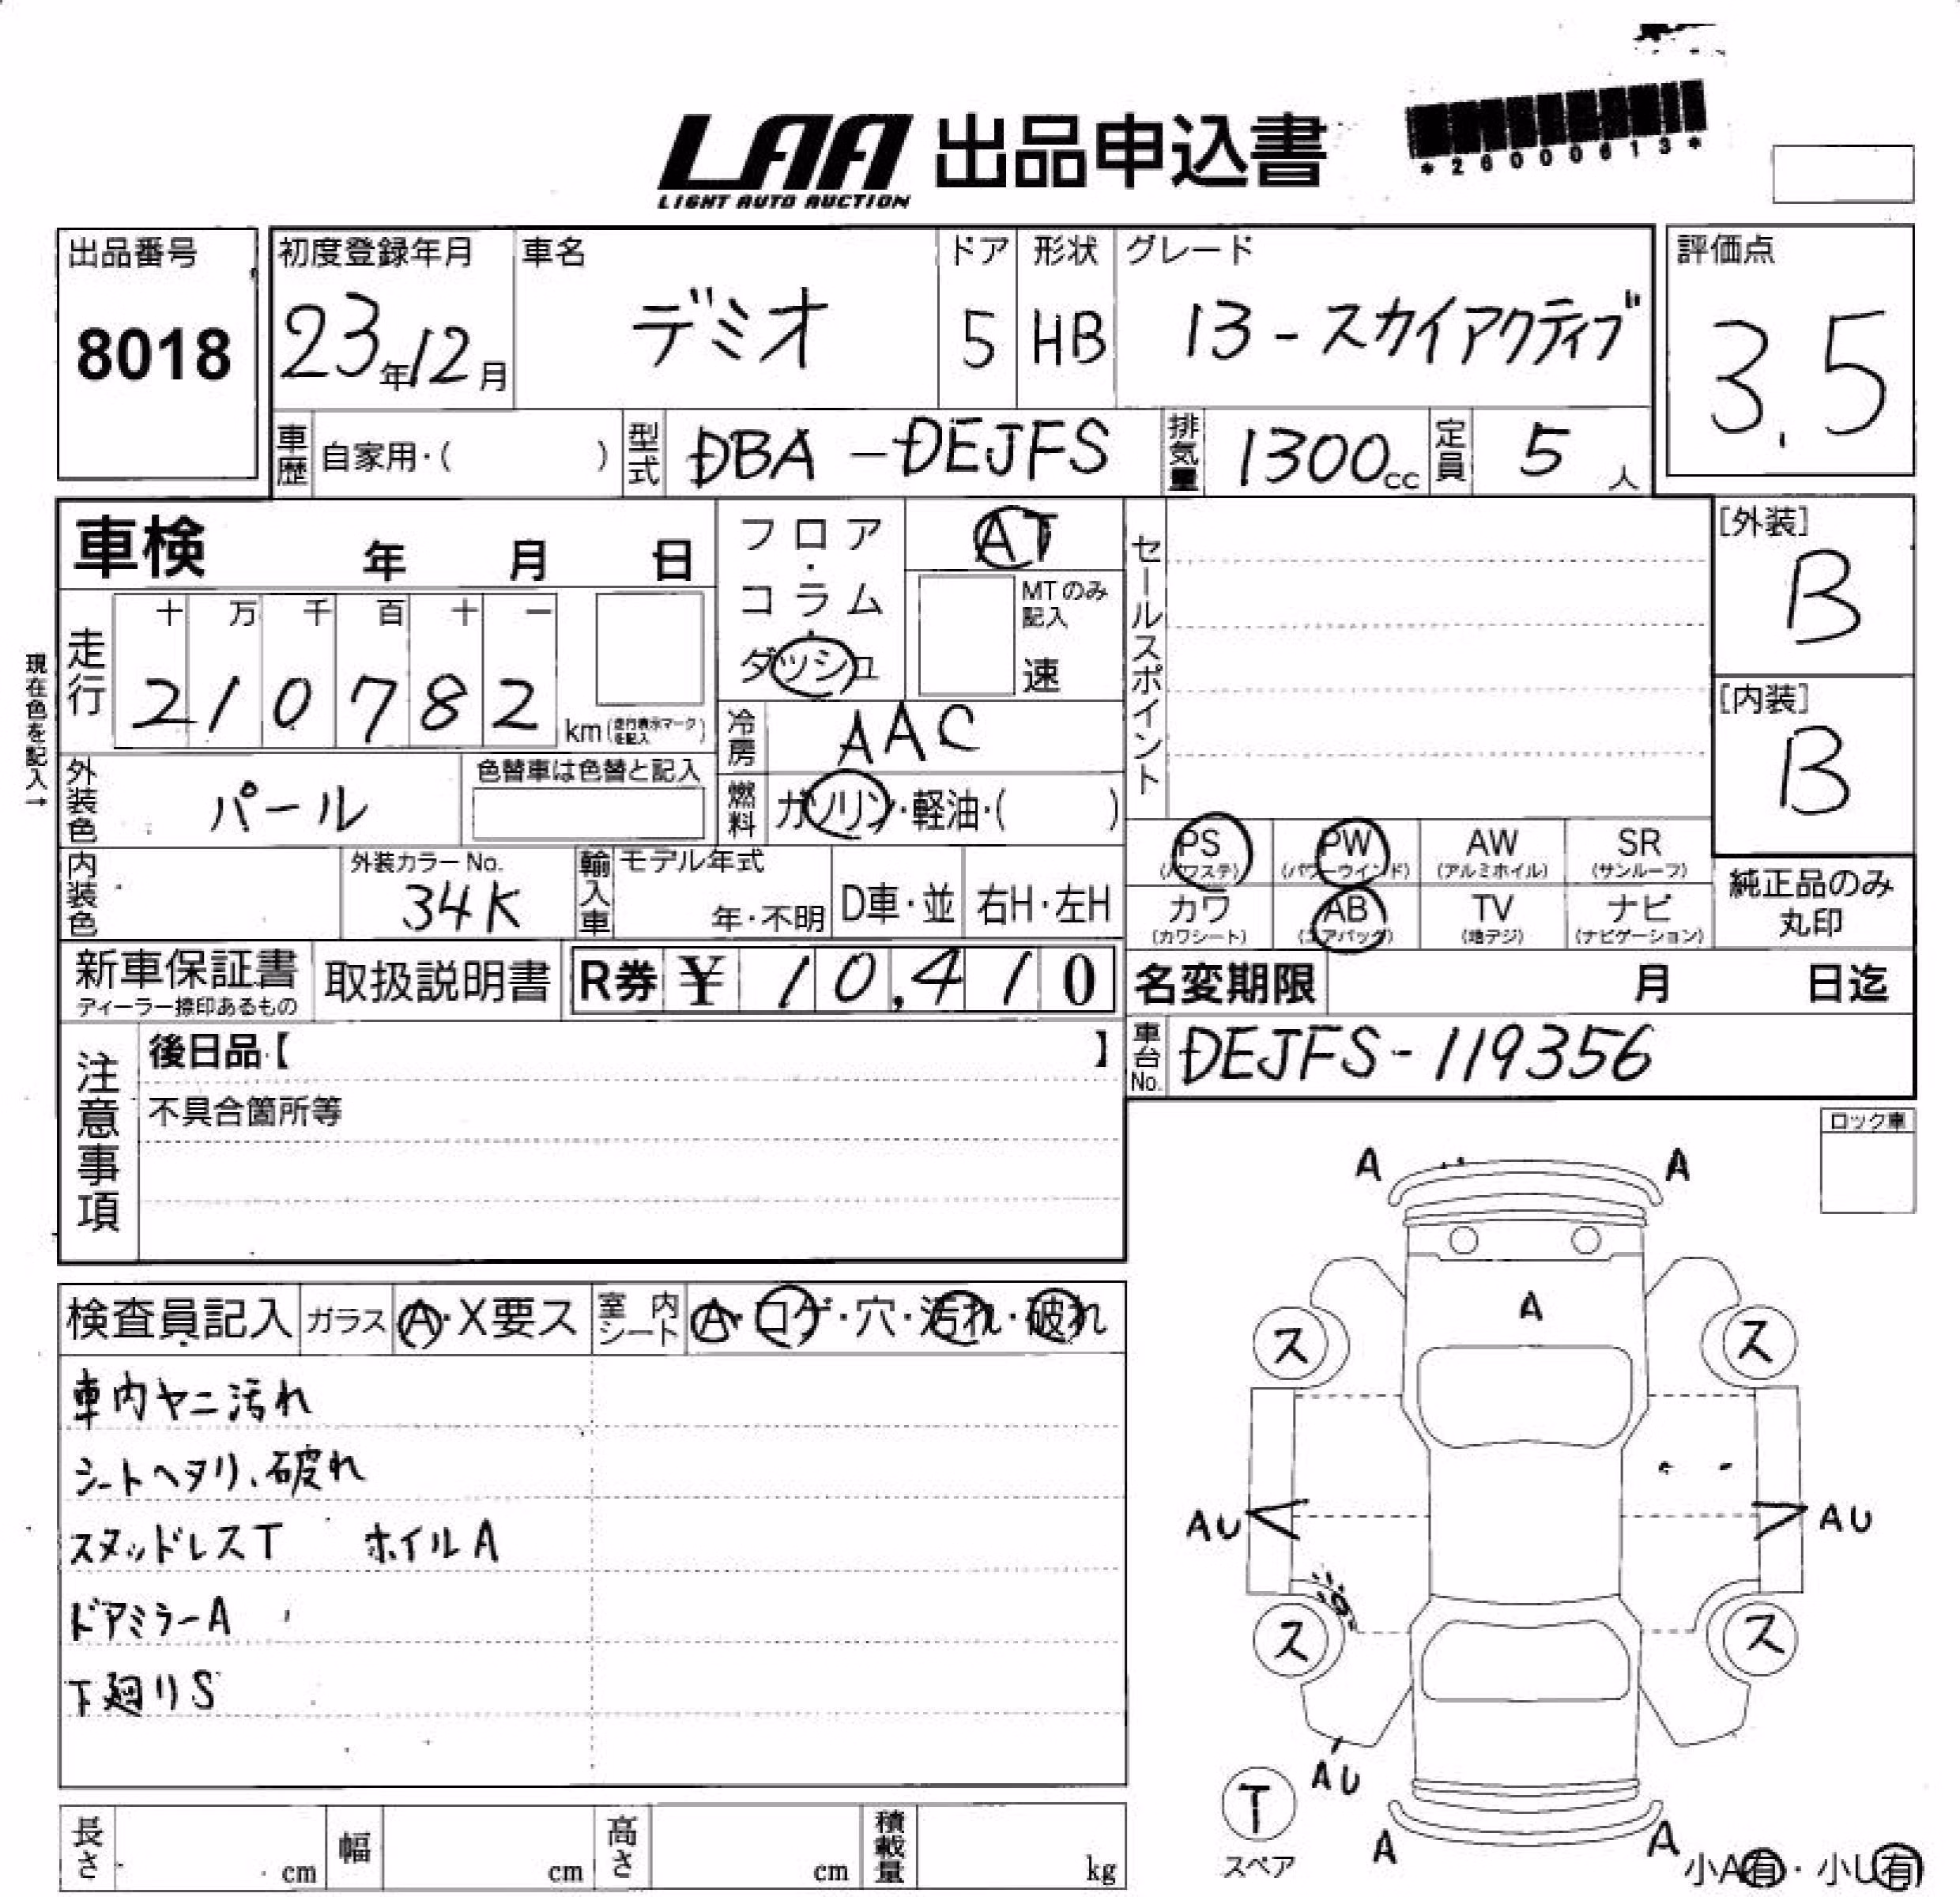 LAA 出品申込書
LIGHT AUTO AUCTION
*26000613*
出品番号
8018
初度登録年月
23年12月
車名
デミオ
ドア
5
形状
HB
グレード
13-スカイアクティブ
評価点
3.5
車歴 自家用・( )
型式 DBA-DEJFS
排気量 1300cc
定員 5人
車検 年 月 日
フロア・コラム・ダッシュ
AT
MTのみ記入
速
セールスポイント
[外装]
B
[内装]
B
現在色を記入→
走行
十 万 千 百 十 一
2 1 0 7 8 2 km(走行表示マークを記入)
冷房 AAC
外装色 パール
色替車は色替と記入
燃料 ガソリン・軽油・( )
内装色
外装カラーNo.
34K
輸入車
モデル年式
年・不明
D車・並
右H・左H
PS
(パワステ)
PW
(パワーウインド)
AW
(アルミホイル)
SR
(サンルーフ)
カワ
(カワシート)
AB
(エアバッグ)
TV
(地デジ)
ナビ
(ナビゲーション)
純正品のみ
丸印
新車保証書
ディーラー捺印あるもの
取扱説明書
R券 ¥ 10,410
名変期限 月 日迄
車台No. DEJFS-119356
注意事項
後日品【 】
不具合箇所等
ロック車
検査員記入
ガラス A・X要ス
室内シート A・コゲ・穴・汚れ・破れ
車内ヤニ汚れ
シートヘタリ、破れ
スタッドレスT ホイルA
ドアミラーA
下廻りS
A A
A
ス ス
AU AU
ス ス
AU
T
スペア
A A
小A有・小U有
長さ cm
幅 cm
高さ cm
積載量 kg